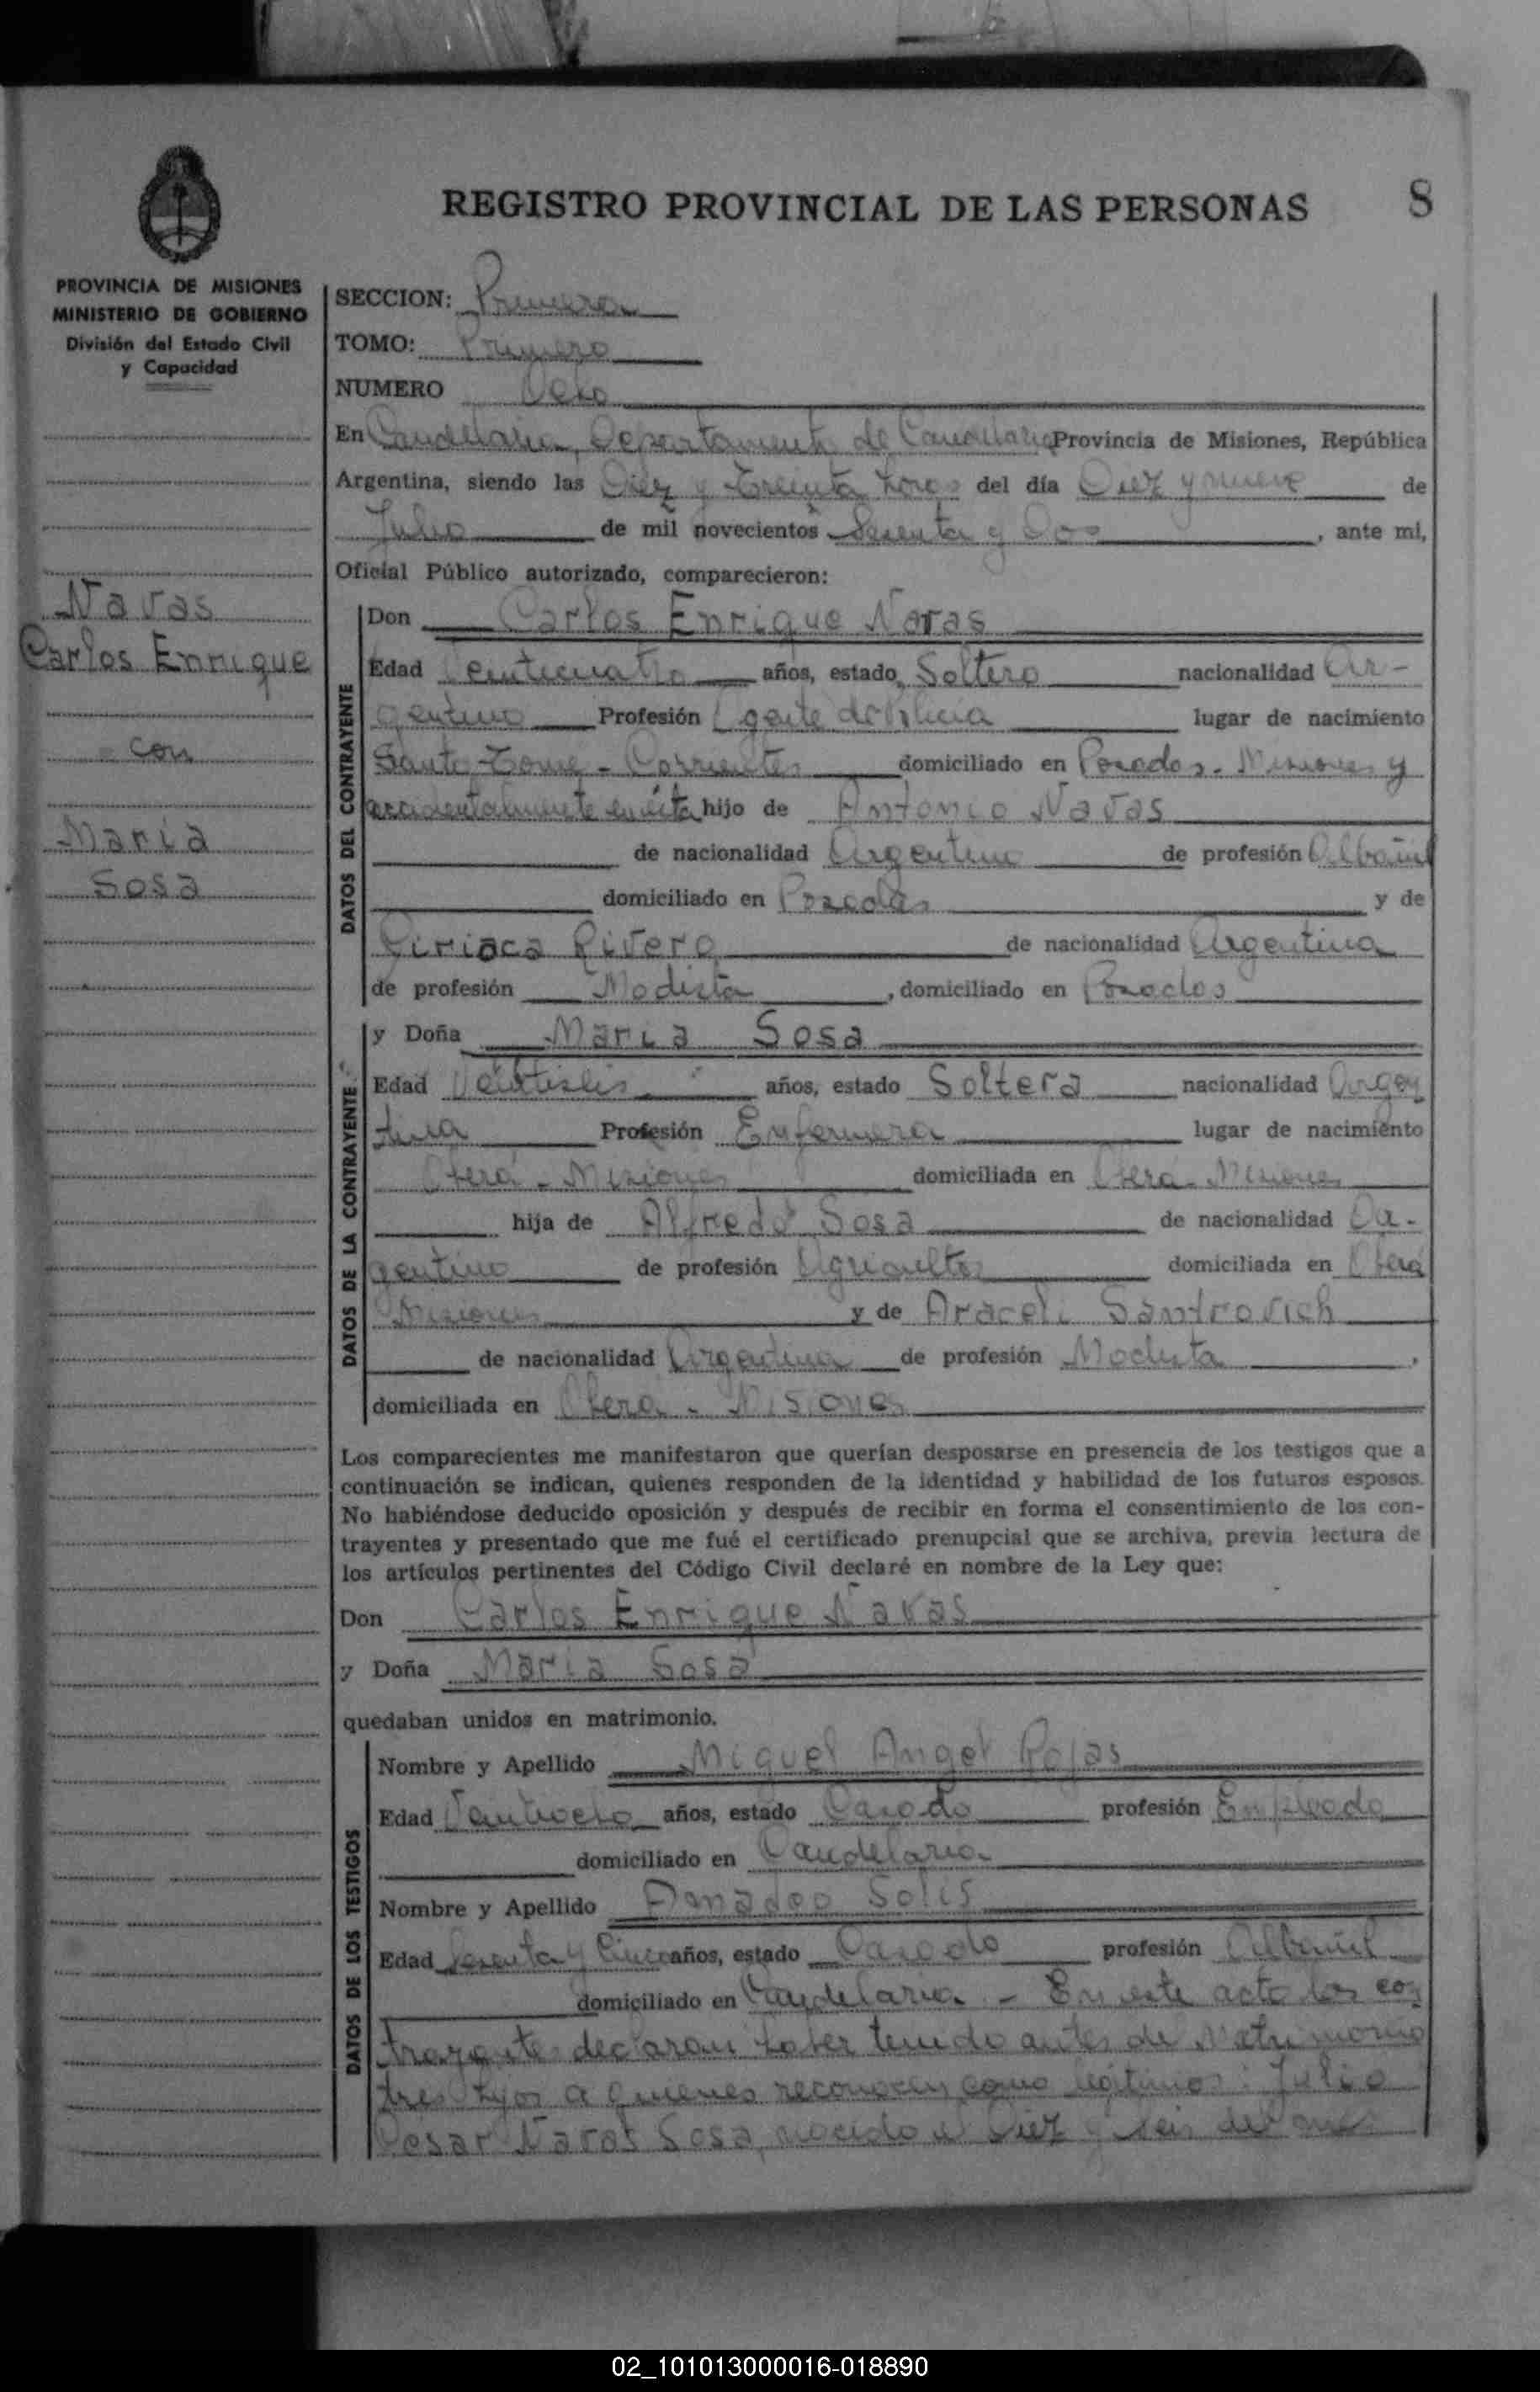 REGISTRO PROVINCIAL DE LAS PERSONAS
8
PROVINCIA DE MISIONES
MINISTERIO DE GOBIERNO
División del Estado Civil
y Capacidad
Navas
Carlos Enrique
con
María
Sosa
SECCION: Primera
TOMO: Primero
NUMERO Ocho
En Candelaria, Departamento de Candelaria Provincia de Misiones, República
Argentina, siendo las Diez y Treinta horas del día Diez y nueve de
Julio de mil novecientos Sesenta y Dos, ante mi,
Oficial Público autorizado, comparecieron:
DATOS DEL CONTRAYENTE
Don Carlos Enrique Navas
Edad Veinticuatro años, estado Soltero nacionalidad Ar-
gentino Profesión Agente de Policia lugar de nacimiento
Santo Tomé - Corrientes domiciliado en Posadas - Misiones y
accidentalmente en ésta hijo de Antonio Navas
de nacionalidad Argentino de profesión Albañil
domiciliado en Posadas y de
Ciriaca Rivero de nacionalidad Argentina
de profesión Modista, domiciliado en Posadas
DATOS DE LA CONTRAYENTE
y Doña Maria Sosa
Edad Veintiseis años, estado Soltera nacionalidad Argen
tina Profesión Enfermera lugar de nacimiento
Oberá - Misiones domiciliada en Oberá - Misiones
hija de Alfredo Sosa de nacionalidad
gentino de profesión Agricultor domiciliada en Oberá
Misiones y de Araceli Santrovich
de nacionalidad Argentina de profesión Modista,
domiciliada en Oberá - Misiones
Los comparecientes me manifestaron que querían desposarse en presencia de los testigos que a
continuación se indican, quienes responden de la identidad y habilidad de los futuros esposos.
No habiéndose deducido oposición y después de recibir en forma el consentimiento de los con-
trayentes y presentado que me fué el certificado prenupcial que se archiva, previa lectura de
los artículos pertinentes del Código Civil declaré en nombre de la Ley que:
Don Carlos Enrique Navas
y Doña Maria Sosa
quedaban unidos en matrimonio.
DATOS DE LOS TESTIGOS
Nombre y Apellido Miguel Angel Rojas
Edad Veintiocho años, estado Casado profesión Empleado
domiciliado en Candelaria
Nombre y Apellido Amadeo Solis
Edad Sesenta y Cinco años, estado Casado profesión Albañil
domiciliado en Candelaria - En este acto los con
trayentes declaran haber tenido antes del Matrimonio
tres hijos a quienes reconocen como legitimos: Julio
Cesar Navas Sosa, nacido el Diez y seis del mes
02_101013000016-018890